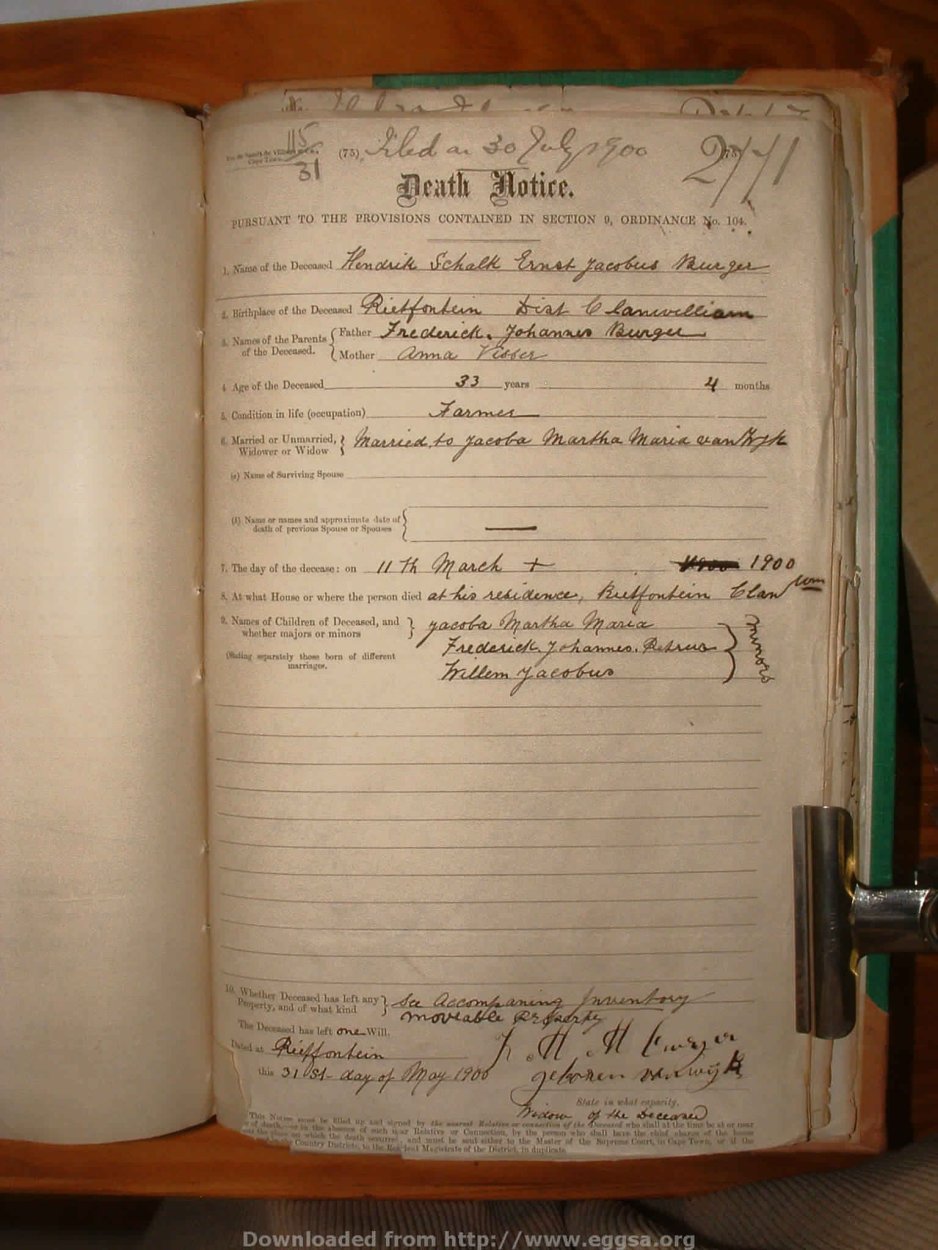 115
31
(75) Filed on 30 July 1900
2771
Death Notice.
PURSUANT TO THE PROVISIONS CONTAINED IN SECTION 9, ORDINANCE No. 104.
1. Name of the Deceased Hendrik Schalk Ernst Jacobus Burger
2. Birthplace of the Deceased Rietfontein Dist Clanwilliam
3. Names of the Parents of the Deceased. Father Frederick Johannes Burger
Mother Anna Visser
4 Age of the Deceased 33 years 4 months
5. Condition in life (occupation) Farmer
6. Married or Unmarried, Widower or Widow Married to Jacoba Martha Maria van Wyk
(a) Name of Surviving Spouse
(b) Name or names and approximate date of death of previous Spouse or Spouses —
7. The day of the decease: on 11th March + 1900 1900
8. At what House or where the person died at his residence, Rietfontein Clanwm
9. Names of Children of Deceased, and whether majors or minors Jacoba Martha Maria
Frederick Johannes Petrus
(Stating separately those born of different marriages. Willem Jacobus
minors
10. Whether Deceased has left any Property, and of what kind See Accompaning Inventory
moveable Property
The Deceased has left one Will.
Dated at Rietfontein
J M M Burger
this 31st day of May 1900 geboren van Wyk
State in what capacity.
Widow of the Deceased
This Notice must be filled up and signed by the nearest Relative or connection of the Deceased who shall at the time be at or near
of death,—or in the absence of such near Relative or Connection, by the person who shall have the chief charge of the house
on which the death occurred, and must be sent either to the Master of the Supreme Court, in Cape Town, or if the
Country Districts, to the Resident Magistrate of the District, in duplicate.
Downloaded from http://www.eggsa.org